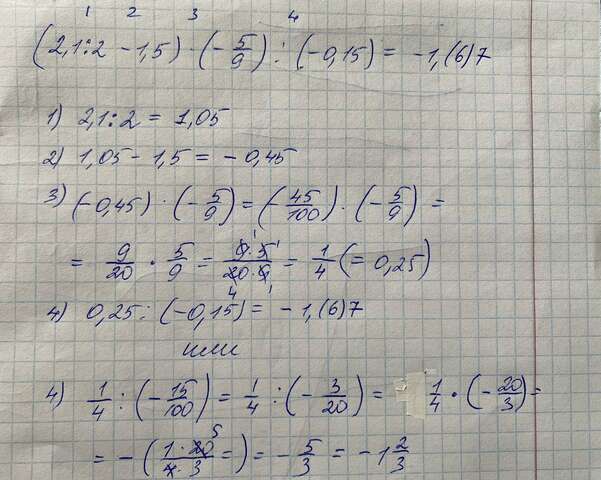 1 2 3 4
(2,1:2 - 1,5) · (- 5/9) : (-0,15) = -1,(6)7
1) 2,1:2 = 1,05
2) 1,05 - 1,5 = - 0,45
3) (-0,45) · (- 5/9) = (- 45/100) · (- 5/9) =
= 9/20 · 5/9 = 9·5/20·9 = 1/4 (= 0,25)
4) 0,25 : (-0,15) = - 1,(6)7
или
4) 1/4 : (- 15/100) = 1/4 : (- 3/20) = 1/4 · (- 20/3) =
= - (1·20/4·3 =) = - 5/3 = -1 2/3